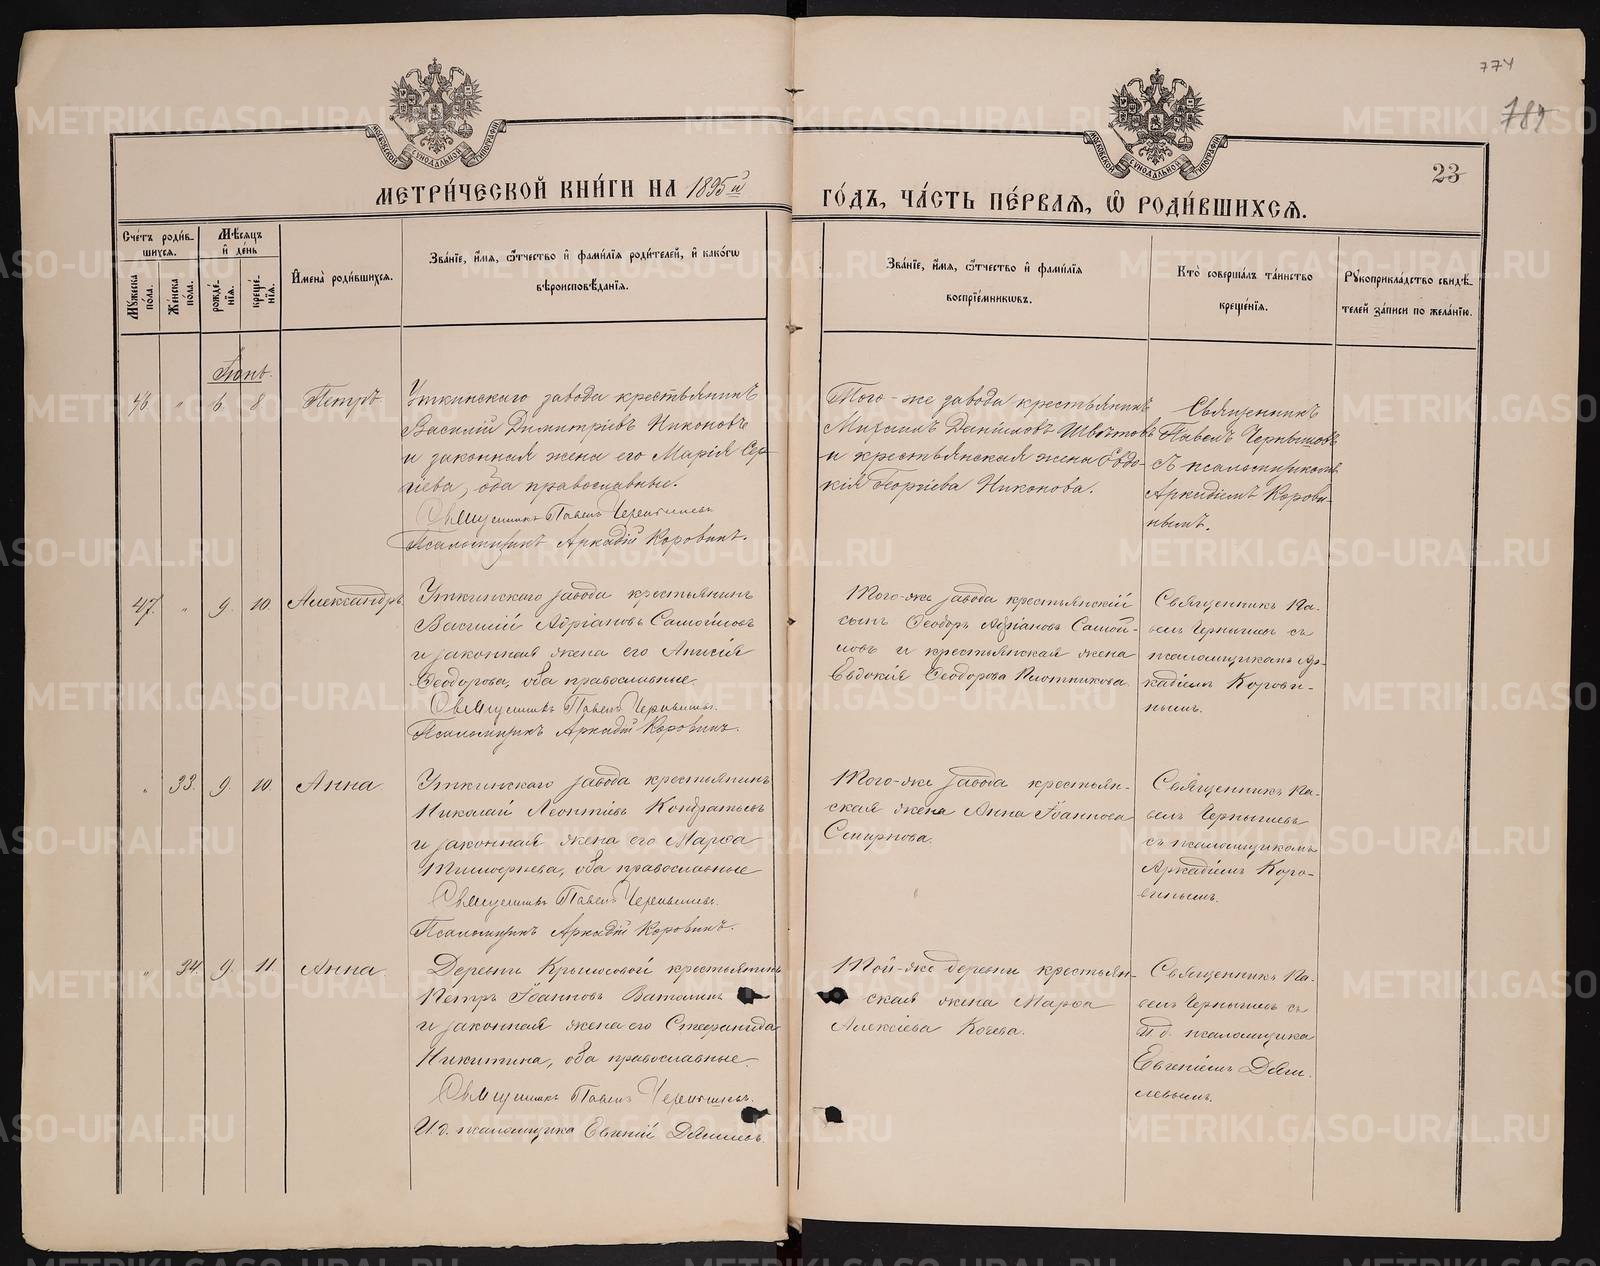 774
789
23
МОСКОВСКОЙ СУНОДАЛЬНОЙ ТИПОГРАФІИ
МОСКОВСКОЙ СУНОДАЛЬНОЙ ТИПОГРАФІИ
МЕТРИ́ЧЕСКОЙ КНИ́ГИ НА 1895й ГО́ДЪ, ЧА́СТЬ ПЕ́РВАѦ, Ѽ РОДИ́ВШИХСѦ.
Сче́тъ роди́в-
шихсѧ.
Мѣ́сѧцъ
и҆ де́нь
Мꙋ́жеска
по́ла.
Же́нска
по́ла.
рожде́-
нїѧ.
креще́-
нїѧ.
И҆мена̀ роди́вшихсѧ.
Зва́нїе, и҆́мѧ, ѻ҆́тчество и҆ фами́лїѧ роди́телей, и҆ како́гѡ
вѣроисповѣ́данїѧ.
Зва́нїе, и҆́мѧ, ѻ҆́тчество и҆ фами́лїѧ
воспрїе́мникѡвъ.
Кто̀ соверша́лъ та́инство
креще́нїѧ.
Рꙋкоприкла́дство свидѣ́-
телей за́писи по жела́нїю.
Іюнь.
46 " 6. 8 Петръ.
Уткинскаго завода крестьянинъ
Василій Димитріевъ Никоновъ
и законная жена его Марія Сер-
гіева, оба православные.
Священникъ Павелъ Чернышевъ
Псаломщикъ Аркадій Коровинъ.
Того-же завода крестьянинъ
Михаилъ Даниловъ Швѣтовъ
и крестьянская жена Евдо-
кія Георгіева Никонова.
Священникъ
Павелъ Чернышевъ
съ псаломщикомъ
Аркадіемъ Корови-
нымъ.
47. " 9. 10. Александръ
Уткинскаго завода крестьянинъ
Василій Адріановъ Самойловъ
и законная жена его Анисія
Ѳеодорова, оба православные.
Священникъ Павелъ Чернышевъ.
Псаломщикъ Аркадій Коровинъ.
Того-же завода крестьянскій
сынъ Ѳеодоръ Адріановъ Самой-
ловъ и крестьянская жена
Евдокія Ѳеодорова Плотникова.
Священникъ Па-
велъ Чернышевъ съ
псаломщикомъ Ар-
кадіемъ Корови-
нымъ.
" 33. 9. 10. Анна
Уткинскаго завода крестьянинъ
Николай Леонтіевъ Кондратьевъ
и законная жена его Марѳа
Тимоѳеева, оба православные
Священникъ Павелъ Чернышевъ.
Псаломщикъ Аркадій Коровинъ.
Того-же завода крестьян-
ская жена Анна Іоаннова
Смирнова.
Священникъ Па-
велъ Чернышевъ
съ псаломщикомъ
Аркадіемъ Коро-
винымъ.
" 34. 9. 11. Анна
Деревни Крылосовой крестьянинъ
Петръ Іоанновъ Ватолинъ
и законная жена его Стефанида
Никитина, оба православные.
Священникъ Павелъ Чернышевъ.
И.д. псаломщика Евгеній Дягилевъ
Той-же деревни крестьян-
ская жена Марѳа
Алексіева Кочева.
Священникъ Па-
велъ Чернышевъ съ
И.д. псаломщика
Евгеніемъ Дяги-
левымъ.
METRIKI.GASO-URAL.RU